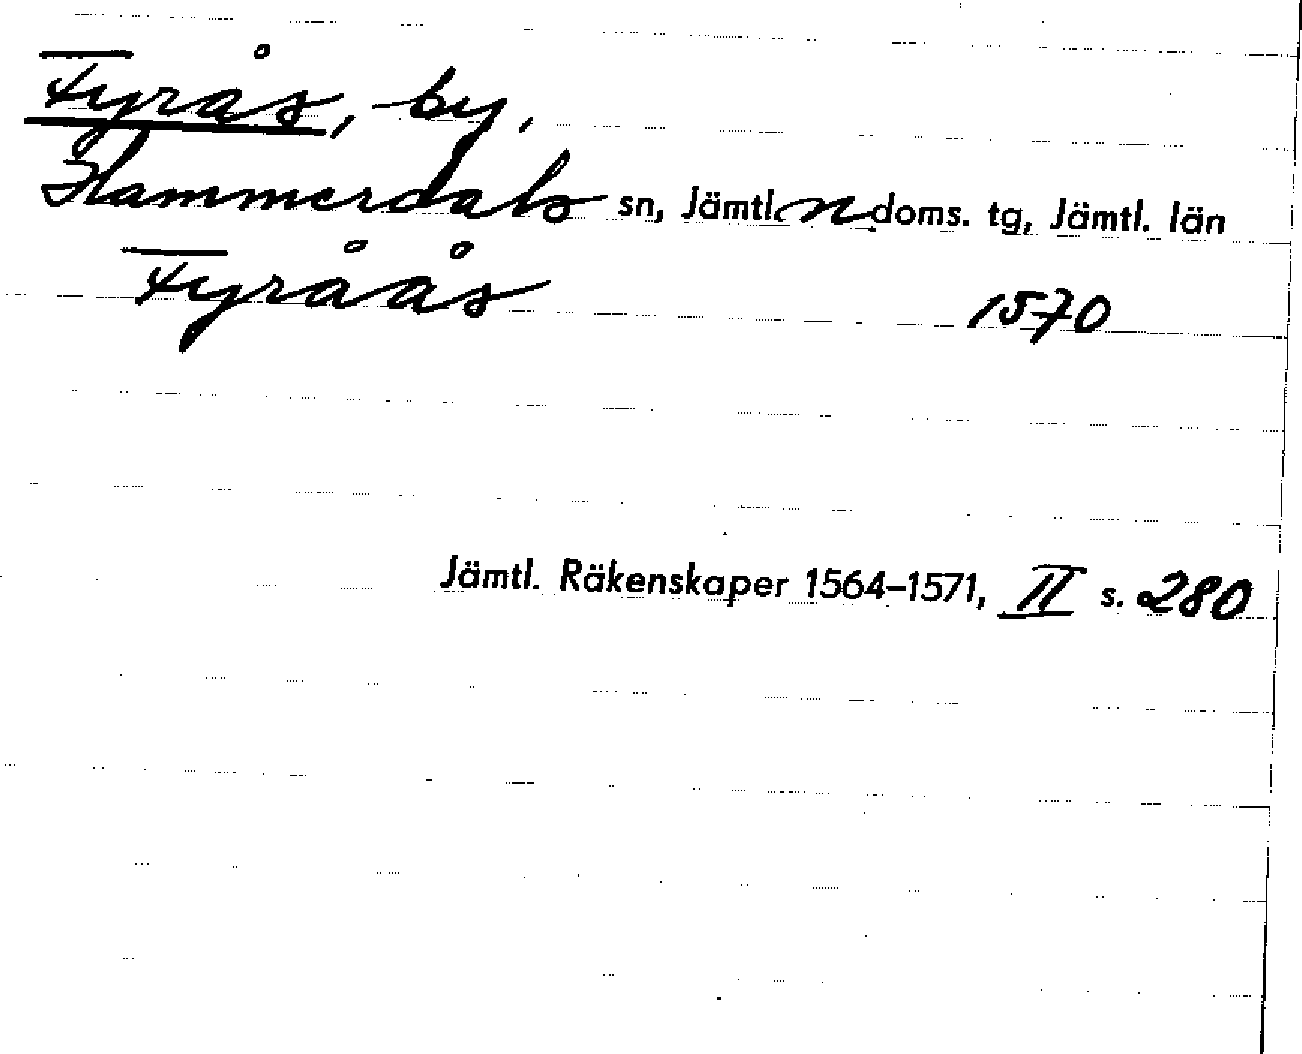 Fyrås, by,
Hammerdals sn, Jämtl. n doms. tg, Jämtl. län
Fyråås 1570
Jämtl. Räkenskaper 1564–1571, II s. 280